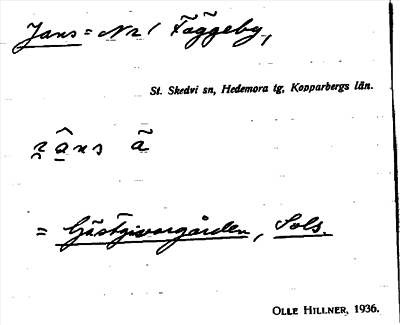 Jans = Nr 1 Fäggeby,
St. Skedvi sn, Hedemora tg, Kopparbergs län.
= Gästgivargården, Sols.
OLLE HILLNER, 1936.